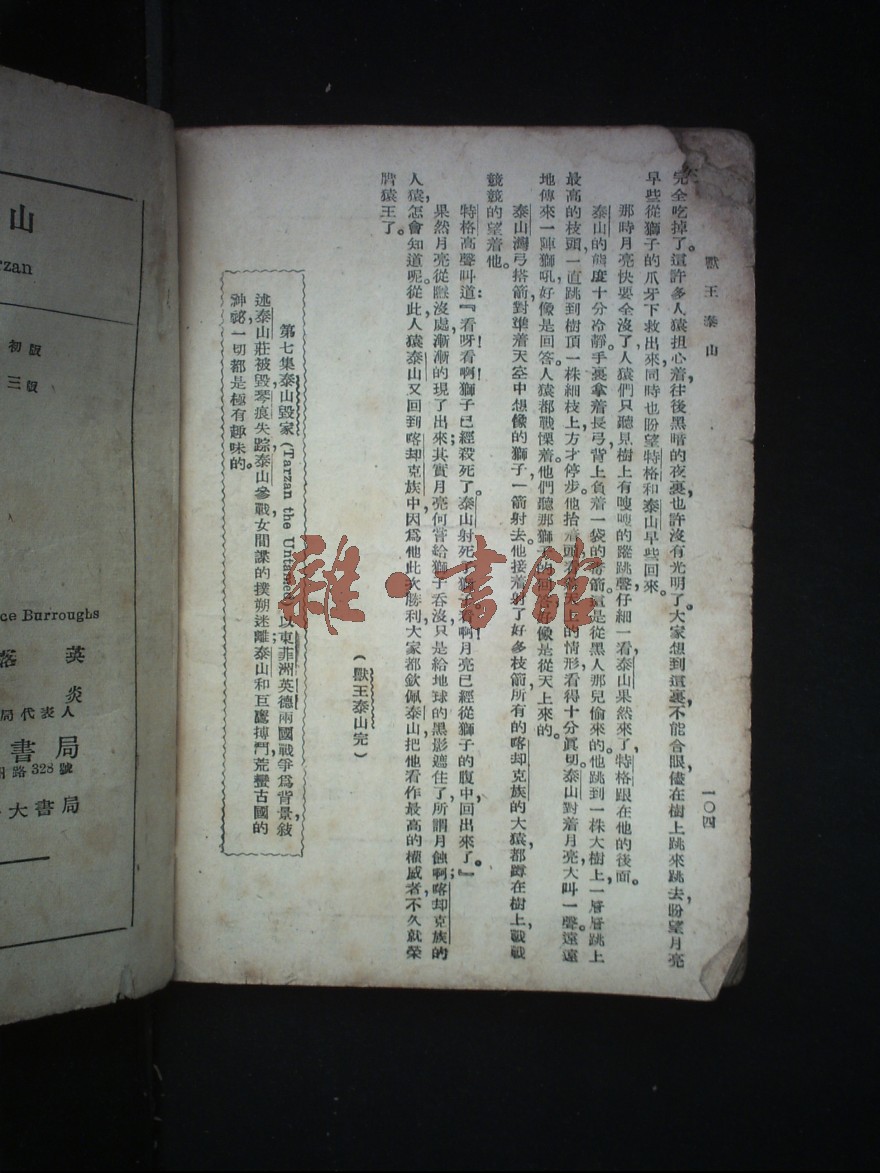 獸王泰山
一〇四
完全吃掉了。這許多人猿担心着往後黑暗的夜裏,也許沒有光明了。大家想到這裏,不能合眼,儘在樹上跳來跳去,盼望月亮
早些從獅子的爪牙下救出來,同時也盼望特格和泰山早些回來。
那時月亮快要全沒了,人猿們只聽見樹上有嗖嗖的蹤跳聲,仔細一看,泰山果然來了,特格跟在他的後面。
泰山的態度十分冷靜,手裏拿着長弓,背上負着一袋的箭,箭這是從黑人那兒偷來的。他跳到一株大樹上,一層層跳上
最高的枝頭,一直跳到樹頂一株細枝上方才停步。他抬着頭上的情形看得十分眞切。泰山對着月亮大叫一聲,遠遠
地傳來一陣獅吼,好像是回答。人猿都戰慄着,他們聽那獅子的回好像是從天上來的。
泰山灣弓搭箭,對準着天空中想像的獅子,一箭射去。他接着射了好多枝箭,所有的喀却克族的大猿,都蹲在樹上,戰戰
兢兢的望着他。
特格高聲叫道:『看呀!看啊!獅子已經殺死了。泰山射死了獅子!看啊!月亮已經從獅子的腹中回出來了。』
果然,月亮從隱沒處,漸漸的現了出來;其實月亮何嘗給獅子吞沒,只是給地球的黑影遮住了,所謂月蝕啊;喀却克族的
人猿怎會知道呢。從此人猿泰山又回到喀却克族中,因爲他此次勝利,大家都欽佩泰山,把他看作最高的權威者,不久就榮
膺猿王了。
(獸王泰山完)
第七集泰山毀家(Tarzan the Untamed)以東非洲英德兩國戰爭爲背景,敍
述泰山莊被毀,琴痕失踪,泰山參戰,女間諜的撲朔迷離;泰山和巨鷹搏鬥,荒蠻古國的
神祕,一切都是極有趣味的。
山
rzan
初版
三版
ce Burroughs
落英
炎
局代表人
書局
路328號
大書局